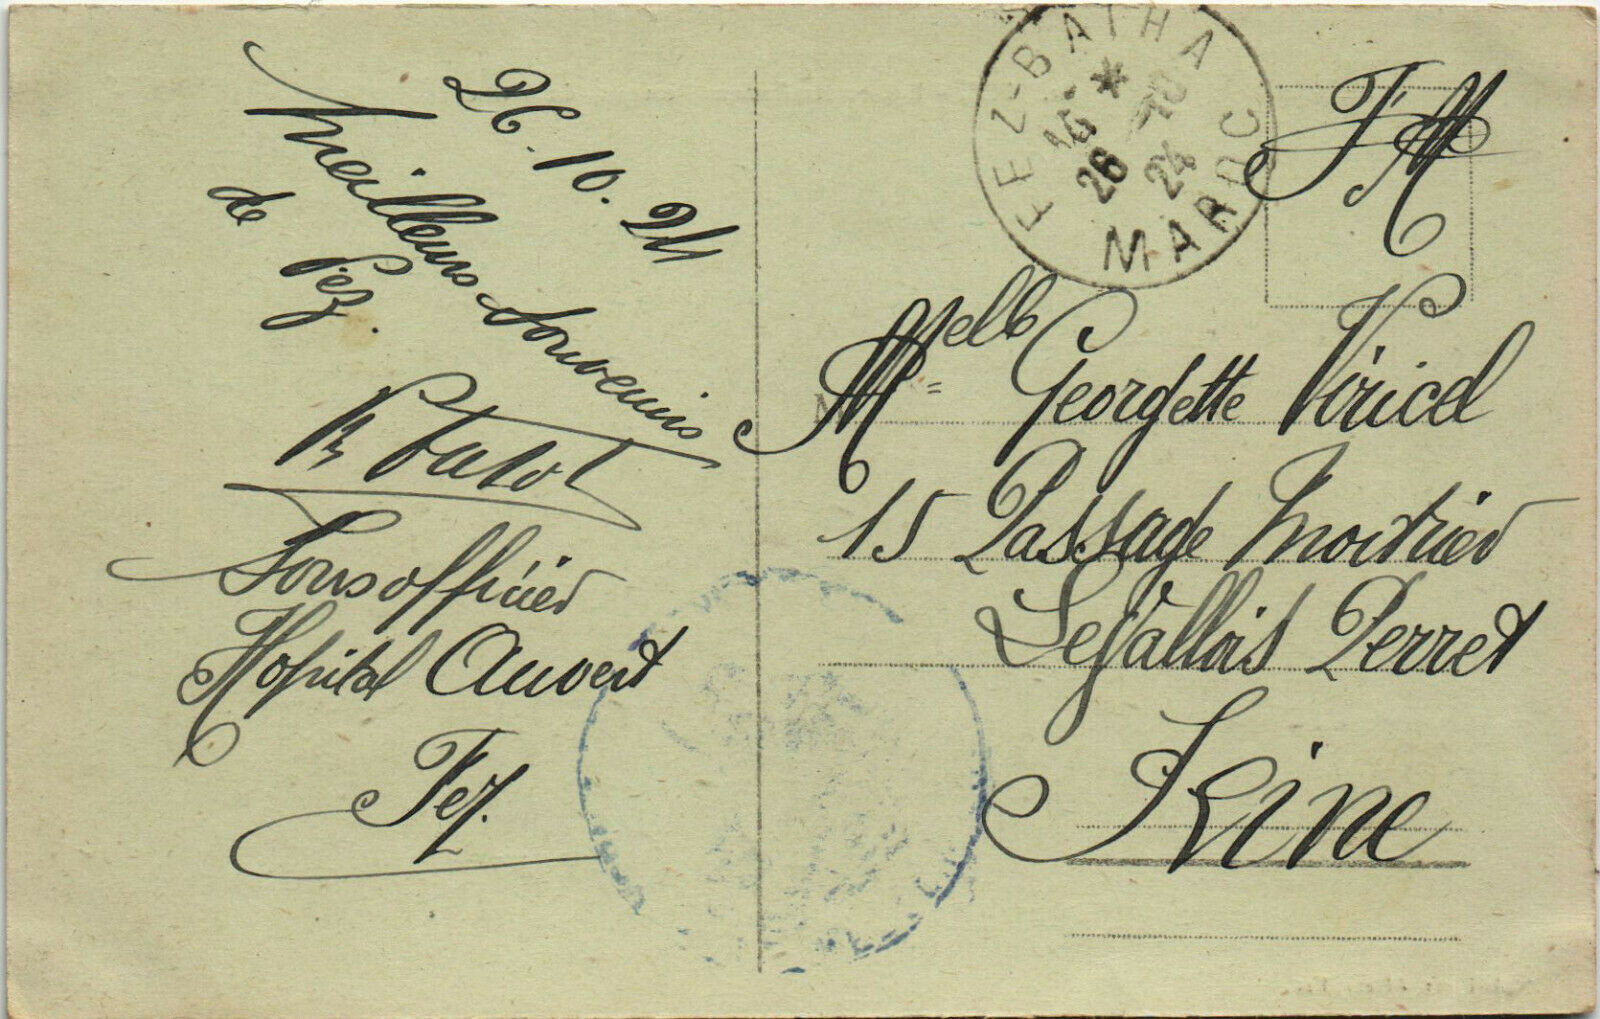 26.10.24
Meilleurs Souvenirs
de Fez.
Sousofficier
Hopital Auvert
Fez.
FEZ-BATHA
*
16
26 10
24
MAROC
FM
Melle Georgette Viricel
15 Passage Moitrier
Levallois Perret
Seine